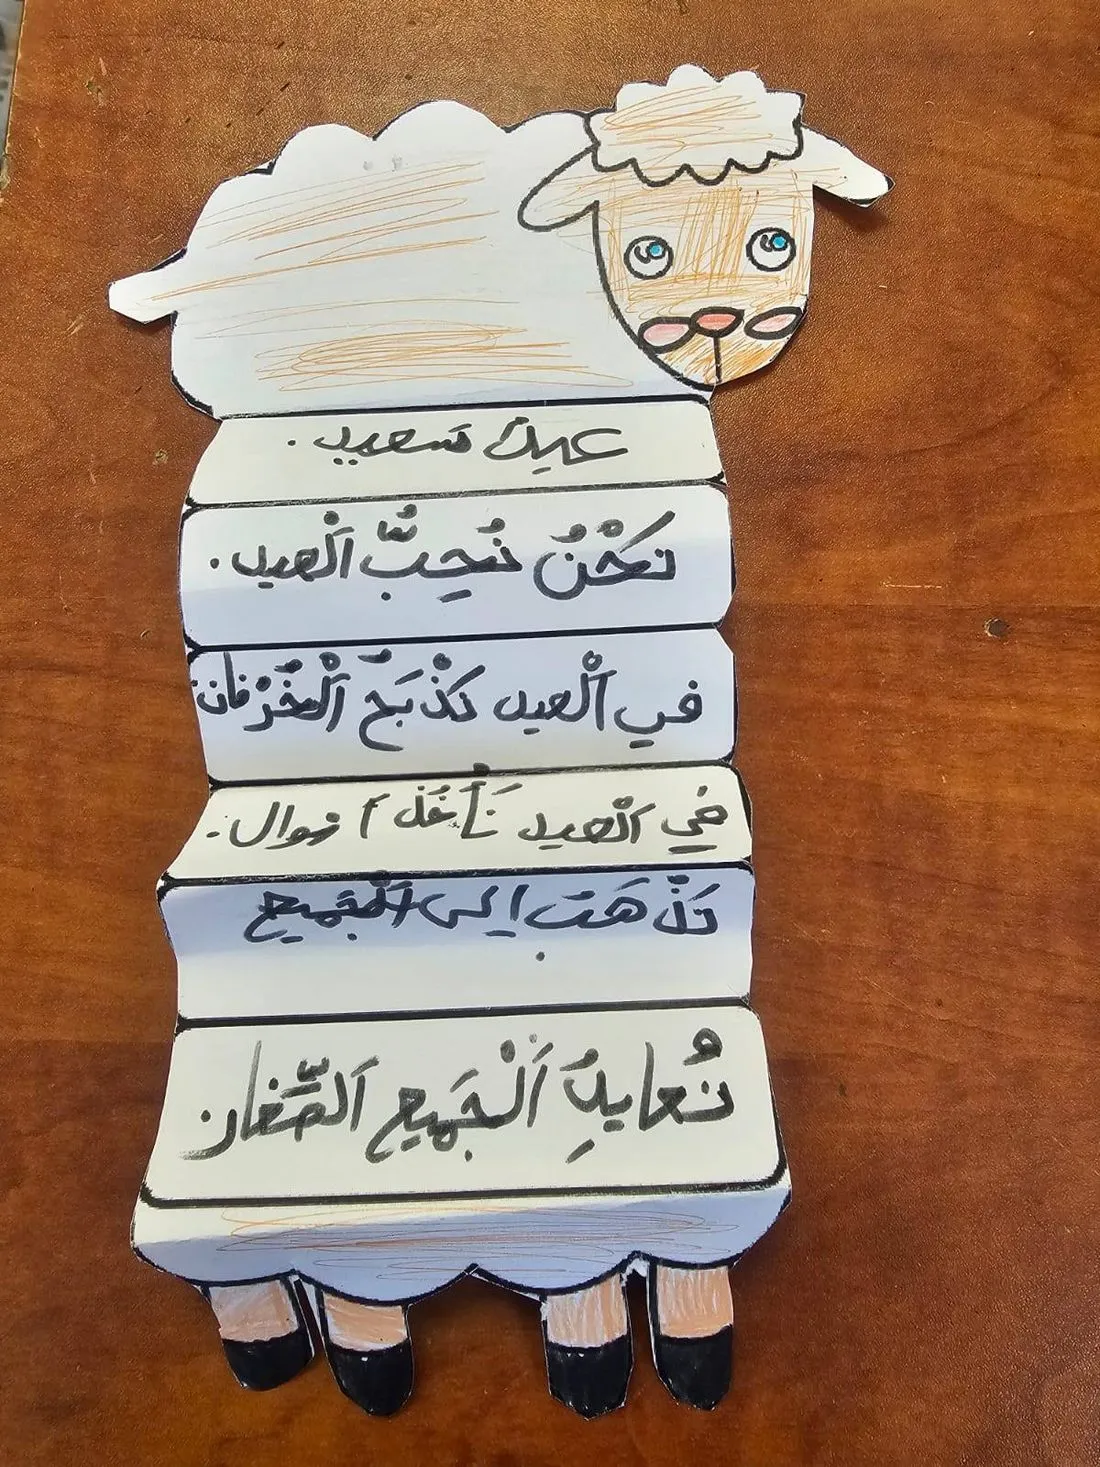 عيدٌ سعيد.
نَحْنُ نُحِبُّ اَلْعيد.
في اَلْعيد نَذْبَحُ اَلْخُرْفان.
في اَلْعيد نَأخُذ أموال.
نَذْهَب إلى اَلْجَميع
نُعايِدُ اَلْجَميع اَلصِّغار